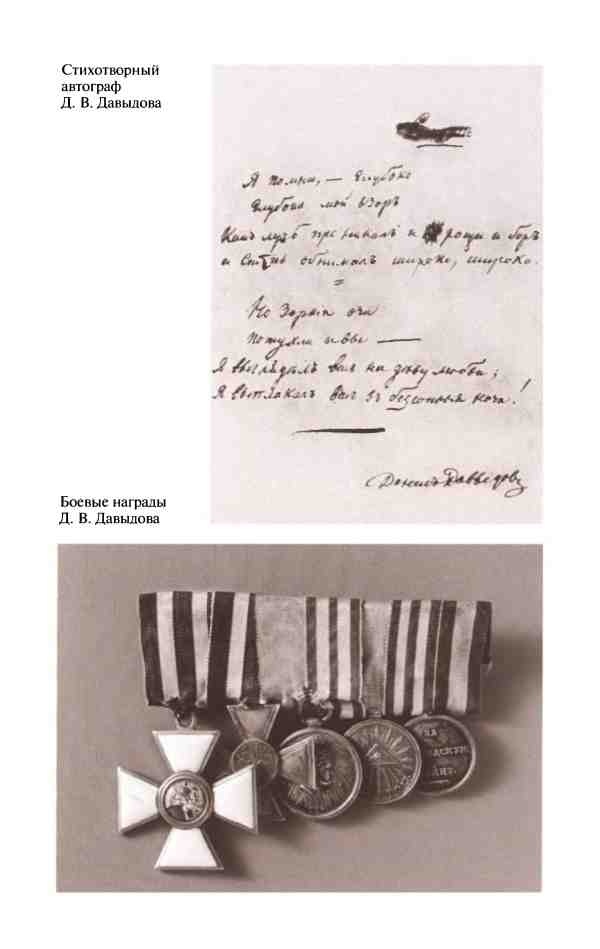 Стихотворный
автограф
Д. В. Давыдова
Я помню, — глубоко
Глубоко мой взоръ
Какъ лучъ проникалъ и рощи и боръ
и степь обнималъ широко, широко.
Но зоркія очи
Потухли и вы —
Я выглядѣлъ васъ на дѣву любви;
Я выплакалъ васъ въ безсонныя ночи!
Денисъ Давыдовъ
Боевые награды
Д. В. Давыдова